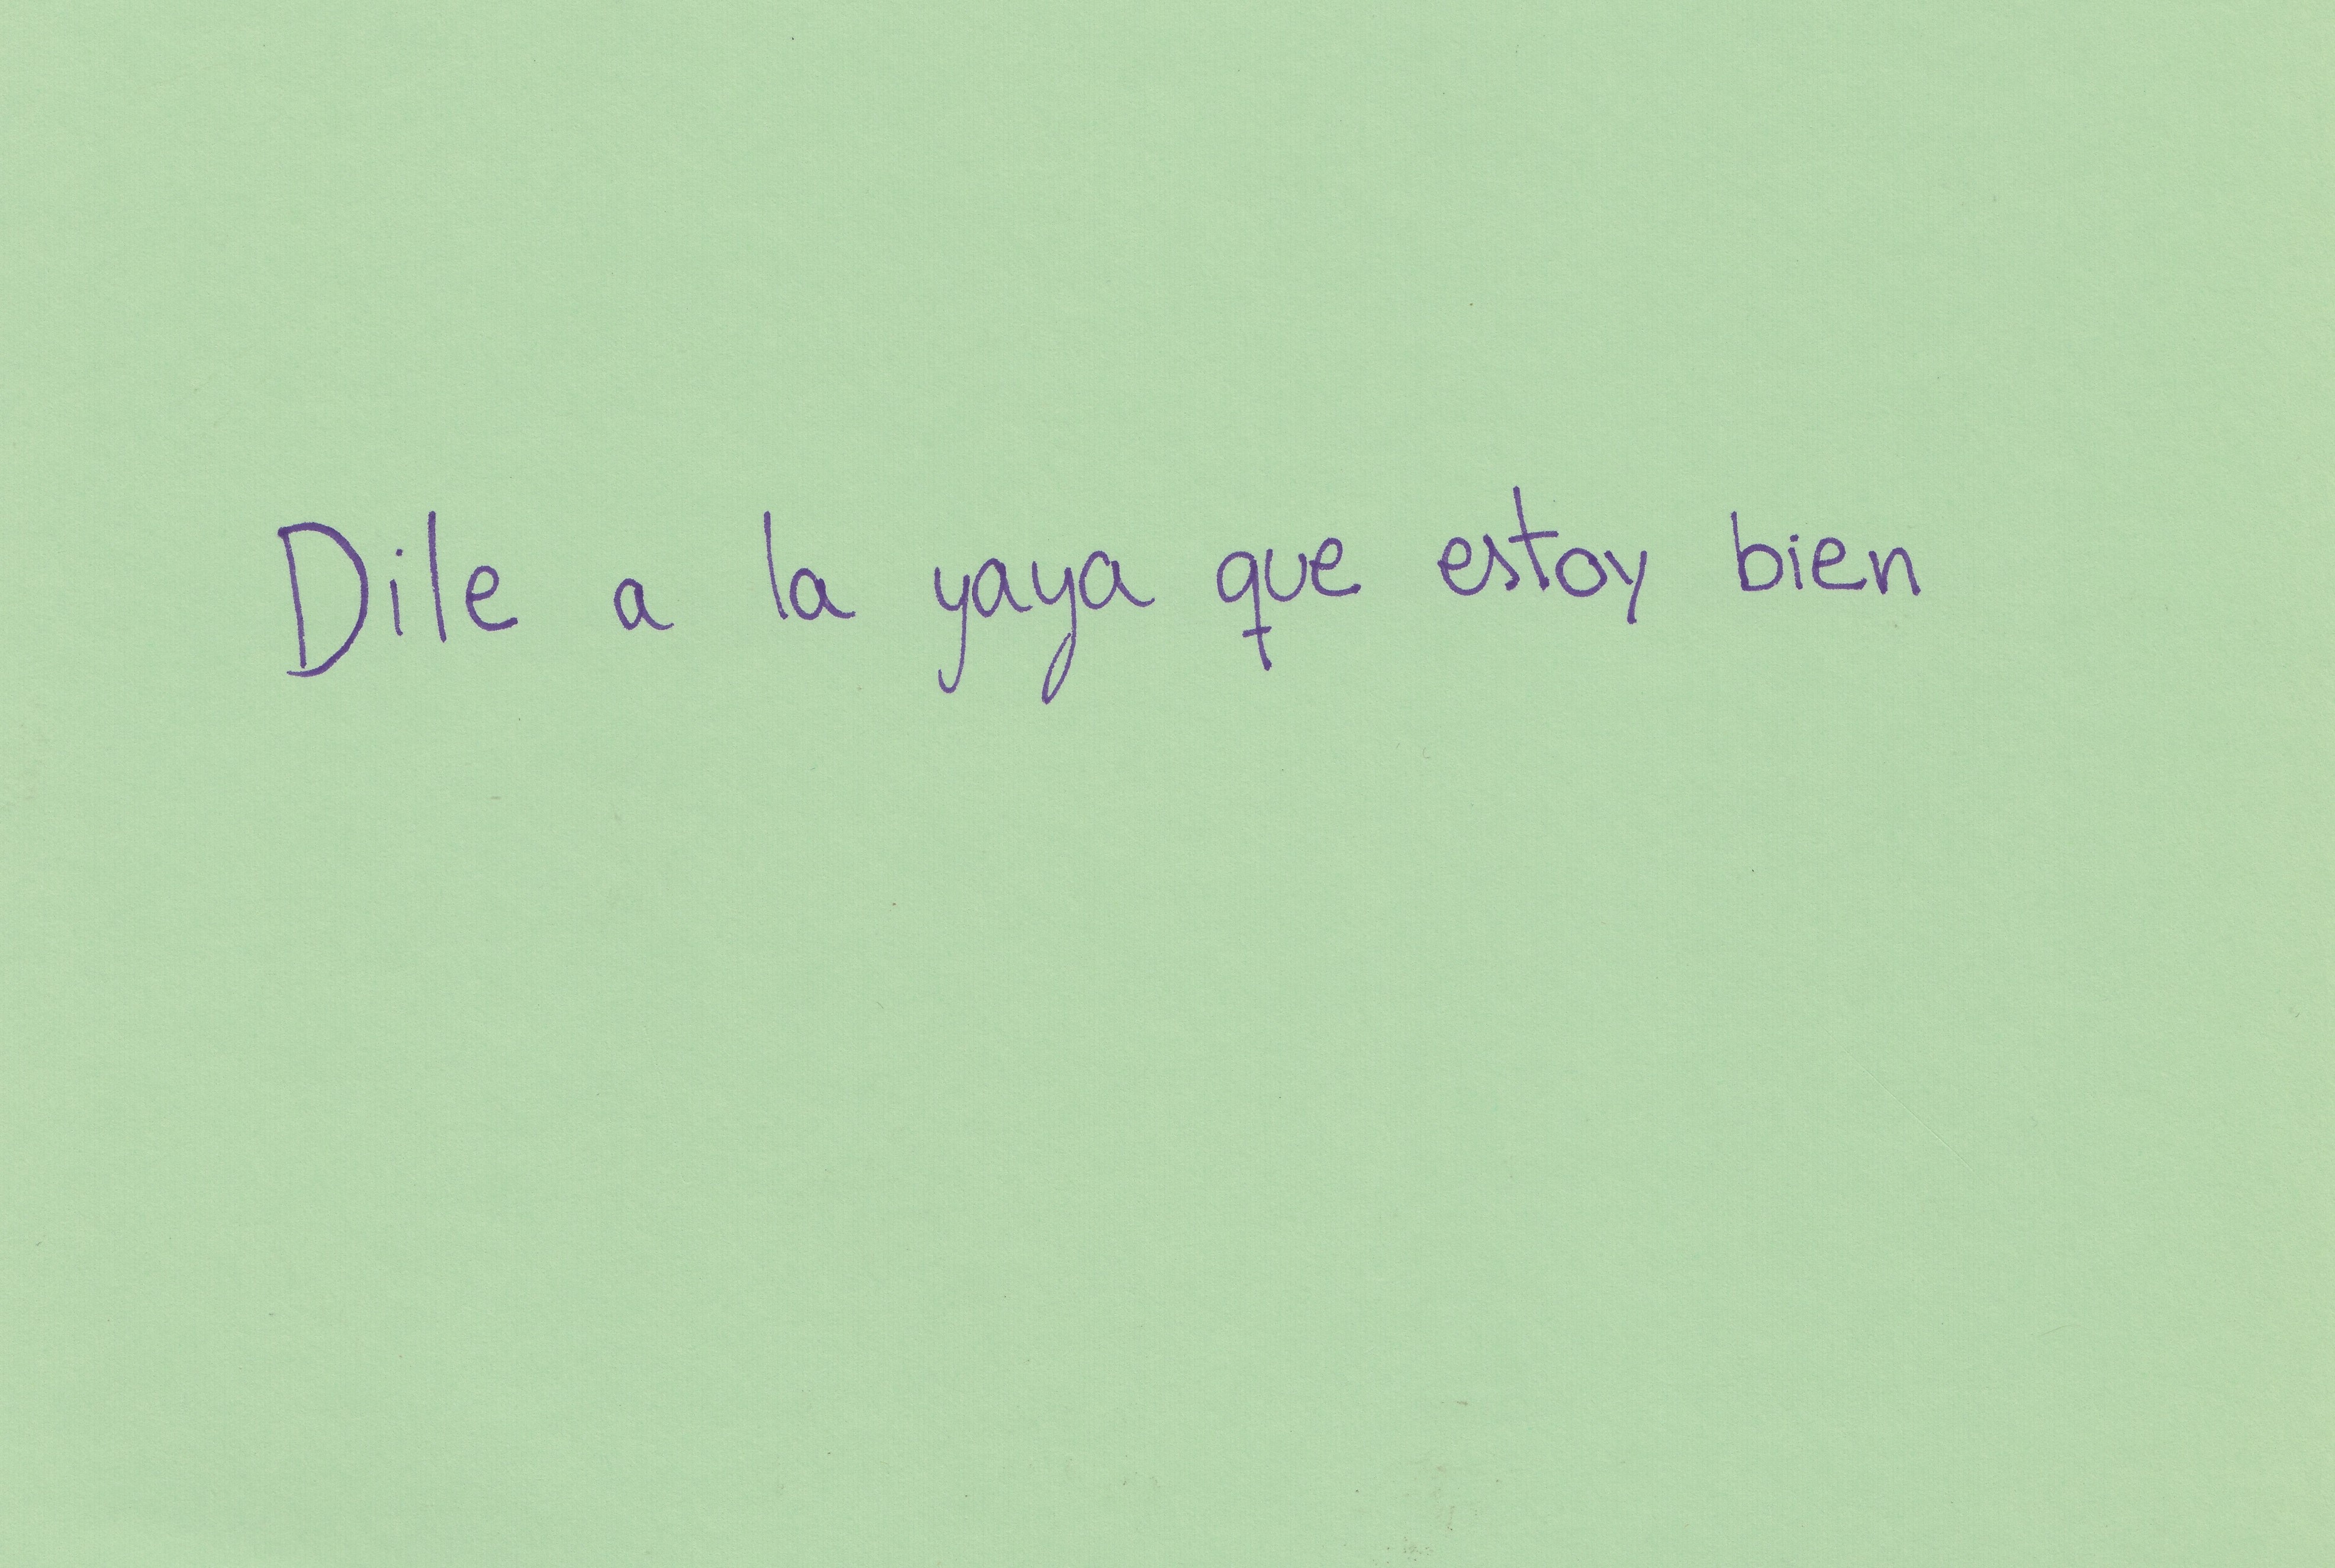 Dile a la yaya que estoy bien